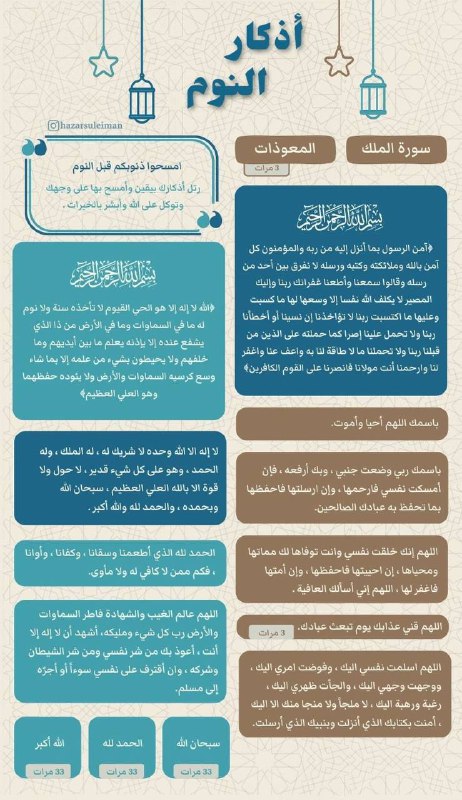 أذكار
النوم
hazarsuleiman
سورة الملك
المعوذات
3 مرات
امسحوا ذنوبكم قبل النوم
رتل أذكارك بيقين وأمسح بها على وجهك
وتوكل على الله وأبشر بالخيرات .
بسم الله الرحمن الرحيم
﴿آمن الرسول بما أنزل إليه من ربه والمؤمنون كل
آمن بالله وملائكته وكتبه ورسله لا نفرق بين أحد من
رسله وقالوا سمعنا وأطعنا غفرانك ربنا وإليك
المصير لا يكلف الله نفسا إلا وسعها لها ما كسبت
وعليها ما اكتسبت ربنا لا تؤاخذنا إن نسينا أو أخطأنا
ربنا ولا تحمل علينا إصرا كما حملته على الذين من
قبلنا ربنا ولا تحملنا ما لا طاقة لنا به واعف عنا واغفر
لنا وارحمنا أنت مولانا فانصرنا على القوم الكافرين﴾
باسمك اللهم أحيا وأموت.
باسمك ربي وضعت جنبي ، وبك أرفعه ، فإن
أمسكت نفسي فارحمها ، وإن ارسلتها فاحفظها
بما تحفظ به عبادك الصالحين.
اللهم إنك خلقت نفسي وانت توفاها لك مماتها
ومحياها ، إن احييتها فاحفظها ، وإن أمتها
فاغفر لها ، اللهم إني أسألك العافية .
اللهم قني عذابك يوم تبعث عبادك.
3 مرات
اللهم اسلمت نفسي اليك ، وفوضت امري اليك ،
ووجهت وجهي اليك ، والجأت ظهري اليك ،
رغبة ورهبة اليك ، لا ملجأ ولا منجا منك الا اليك
، أمنت بكتابك الذي أنزلت وبنبيك الذي أرسلت.
بسم الله الرحمن الرحيم
﴿الله لا إله إلا هو الحي القيوم لا تأخذه سنة ولا نوم
له ما في السماوات وما في الأرض من ذا الذي
يشفع عنده إلا بإذنه يعلم ما بين أيديهم وما
خلفهم ولا يحيطون بشيء من علمه إلا بما شاء
وسع كرسيه السماوات والأرض ولا يئوده حفظهما
وهو العلي العظيم﴾
لا إله الا الله وحده لا شريك له ، له الملك ، وله
الحمد ، وهو على كل شيء قدير ، لا حول ولا
قوة الا بالله العلي العظيم ، سبحان الله
وبحمده ، والحمد لله والله أكبر .
الحمد لله الذي أطعمنا وسقانا ، وكفانا ، وأوانا
، فكم ممن لا كافي له ولا مأوى.
اللهم عالم الغيب والشهادة فاطر السماوات
والأرض رب كل شيء ومليكه، أشهد أن لا إله إلا
أنت ، أعوذ بك من شر نفسي ومن شر الشيطان
وشركه ، وان أقترف على نفسي سوءاً أو أجرّه
إلى مسلم.
سبحان الله
33 مرات
الحمد لله
33 مرات
الله أكبر
33 مرات